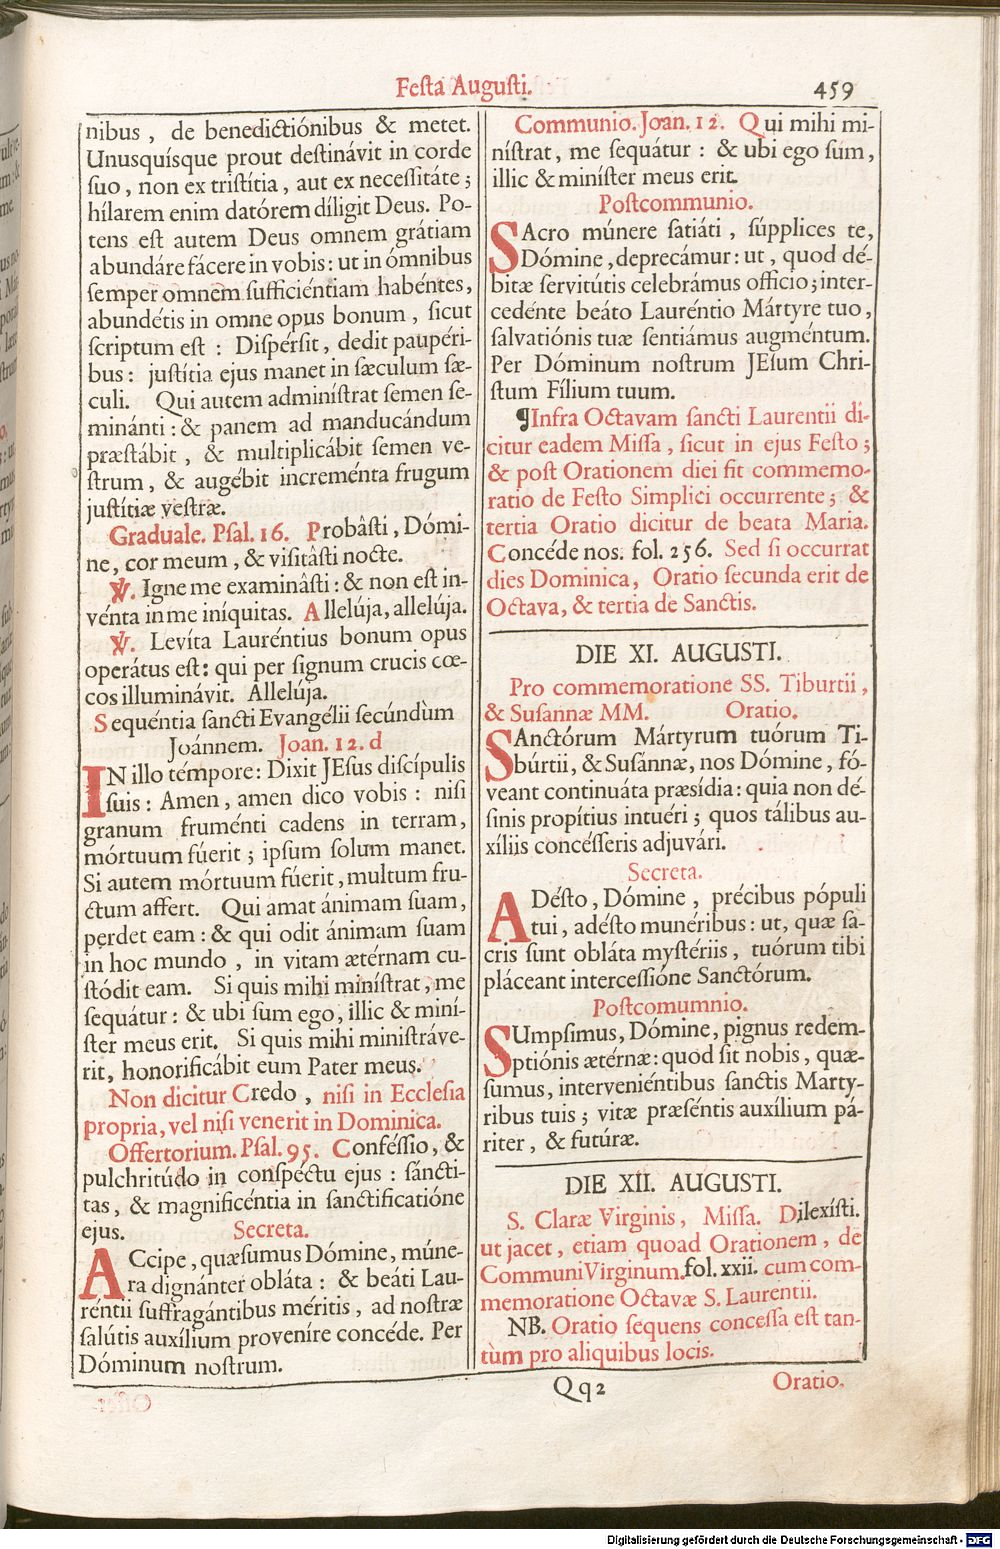 Festa Augusti.
459
nibus, de benedictiónibus & metet.
Unusquísque prout destinávit in corde
suo, non ex tristítia, aut ex necessitáte;
hílarem enim datórem díligit Deus. Po-
tens est autem Deus omnem grátiam
abundáre fácere in vobis: ut in ómnibus
semper omnem sufficiéntiam habéntes,
abundétis in omne opus bonum, sicut
scriptum est: Dispérsit, dedit paupéri-
bus: justítia ejus manet in sæculum sæ-
culi. Qui autem adminístrat semen se-
minánti: & panem ad manducándum
præstábit, & multiplicábit semen ve-
strum, & augébit increménta frugum
justítiæ vestræ.
Graduale. Psal. 16. Probâsti, Dómi-
ne, cor meum, & visitâsti nocte.
℣. Igne me examinâsti: & non est in-
vénta in me iníquitas. Allelúja, allelúja.
℣. Levíta Lauréntius bonum opus
operátus est: qui per signum crucis cœ-
cos illuminávit. Allelúja.
Sequéntia sancti Evangélii secúndùm
Joánnem. Joan. 12. d
IN illo témpore: Dixit JEsus discípulis
suis: Amen, amen dico vobis: nisi
granum fruménti cadens in terram,
mórtuum fúerit; ipsum solum manet.
Si autem mórtuum fúerit, multum fru-
ctum affert. Qui amat ánimam suam,
perdet eam: & qui odit ánimam suam
in hoc mundo, in vitam ætérnam cu-
stódit eam. Si quis mihi minístrat, me
sequátur: & ubi sum ego, illic & miní-
ster meus erit. Si quis mihi ministráve-
rit, honorificábit eum Pater meus.
Non dicitur Credo, nisi in Ecclesia
propria, vel nisi venerit in Dominica.
Offertorium. Psal. 95. Conféssio, &
pulchritúdo in conspéctu ejus: sáncti-
tas, & magnificéntia in sanctificatióne
ejus. Secreta.
ACcipe, quæsumus Dómine, múne-
ra dignánter obláta: & beáti Lau-
réntii suffragántibus méritis, ad nostræ
salútis auxílium proveníre concéde. Per
Dóminum nostrum.
Communio. Joan. 12. Qui mihi mi-
nístrat, me sequátur: & ubi ego sum,
illic & miníster meus erit.
Postcommunio.
SAcro múnere satiáti, súpplices te,
Dómine, deprecámur: ut, quod dé-
bitæ servitútis celebrámus officio; inter-
cedénte beáto Lauréntio Mártyre tuo,
salvatiónis tuæ sentiámus augméntum.
Per Dóminum nostrum JEsum Chri-
stum Fílium tuum.
¶Infra Octavam sancti Laurentii di-
citur eadem Missa, sicut in ejus Festo;
& post Orationem diei fit commemo-
ratio de Festo Simplici occurrente; &
tertia Oratio dicitur de beata Maria.
Concéde nos. fol. 256. Sed si occurrat
dies Dominica, Oratio secunda erit de
Octava, & tertia de Sanctis.
DIE XI. AUGUSTI.
Pro commemoratione SS. Tiburtii,
& Susannæ MM. Oratio.
SAnctórum Mártyrum tuórum Ti-
búrtii, & Susánnæ, nos Dómine, fó-
veant continuáta præsídia: quia non dé-
sinis propítius intuéri; quos tálibus au-
xíliis concésseris adjuvári.
Secreta.
ADésto, Dómine, précibus pópuli
tui, adésto munéribus: ut, quæ sa-
cris sunt obláta mystériis, tuórum tibi
pláceant intercessióne Sanctórum.
Postcomumnio.
SUmpsimus, Dómine, pignus redem-
ptiónis ætérnæ: quod sit nobis, quæ-
sumus, interveniéntibus sanctis Marty-
ribus tuis; vitæ præséntis auxílium pá-
riter, & futúræ.
DIE XII. AUGUSTI.
S. Claræ Virginis, Missa. Dilexísti.
ut jacet, etiam quoad Orationem, de
Communi Virginum. fol. xxii. cum com-
memoratione Octavæ S. Laurentii.
NB. Oratio sequens concessa est tan-
tùm pro aliquibus locis.
Qq2
Oratio.
Digitalisierung gefördert durch die Deutsche Forschungsgemeinschaft - DFG